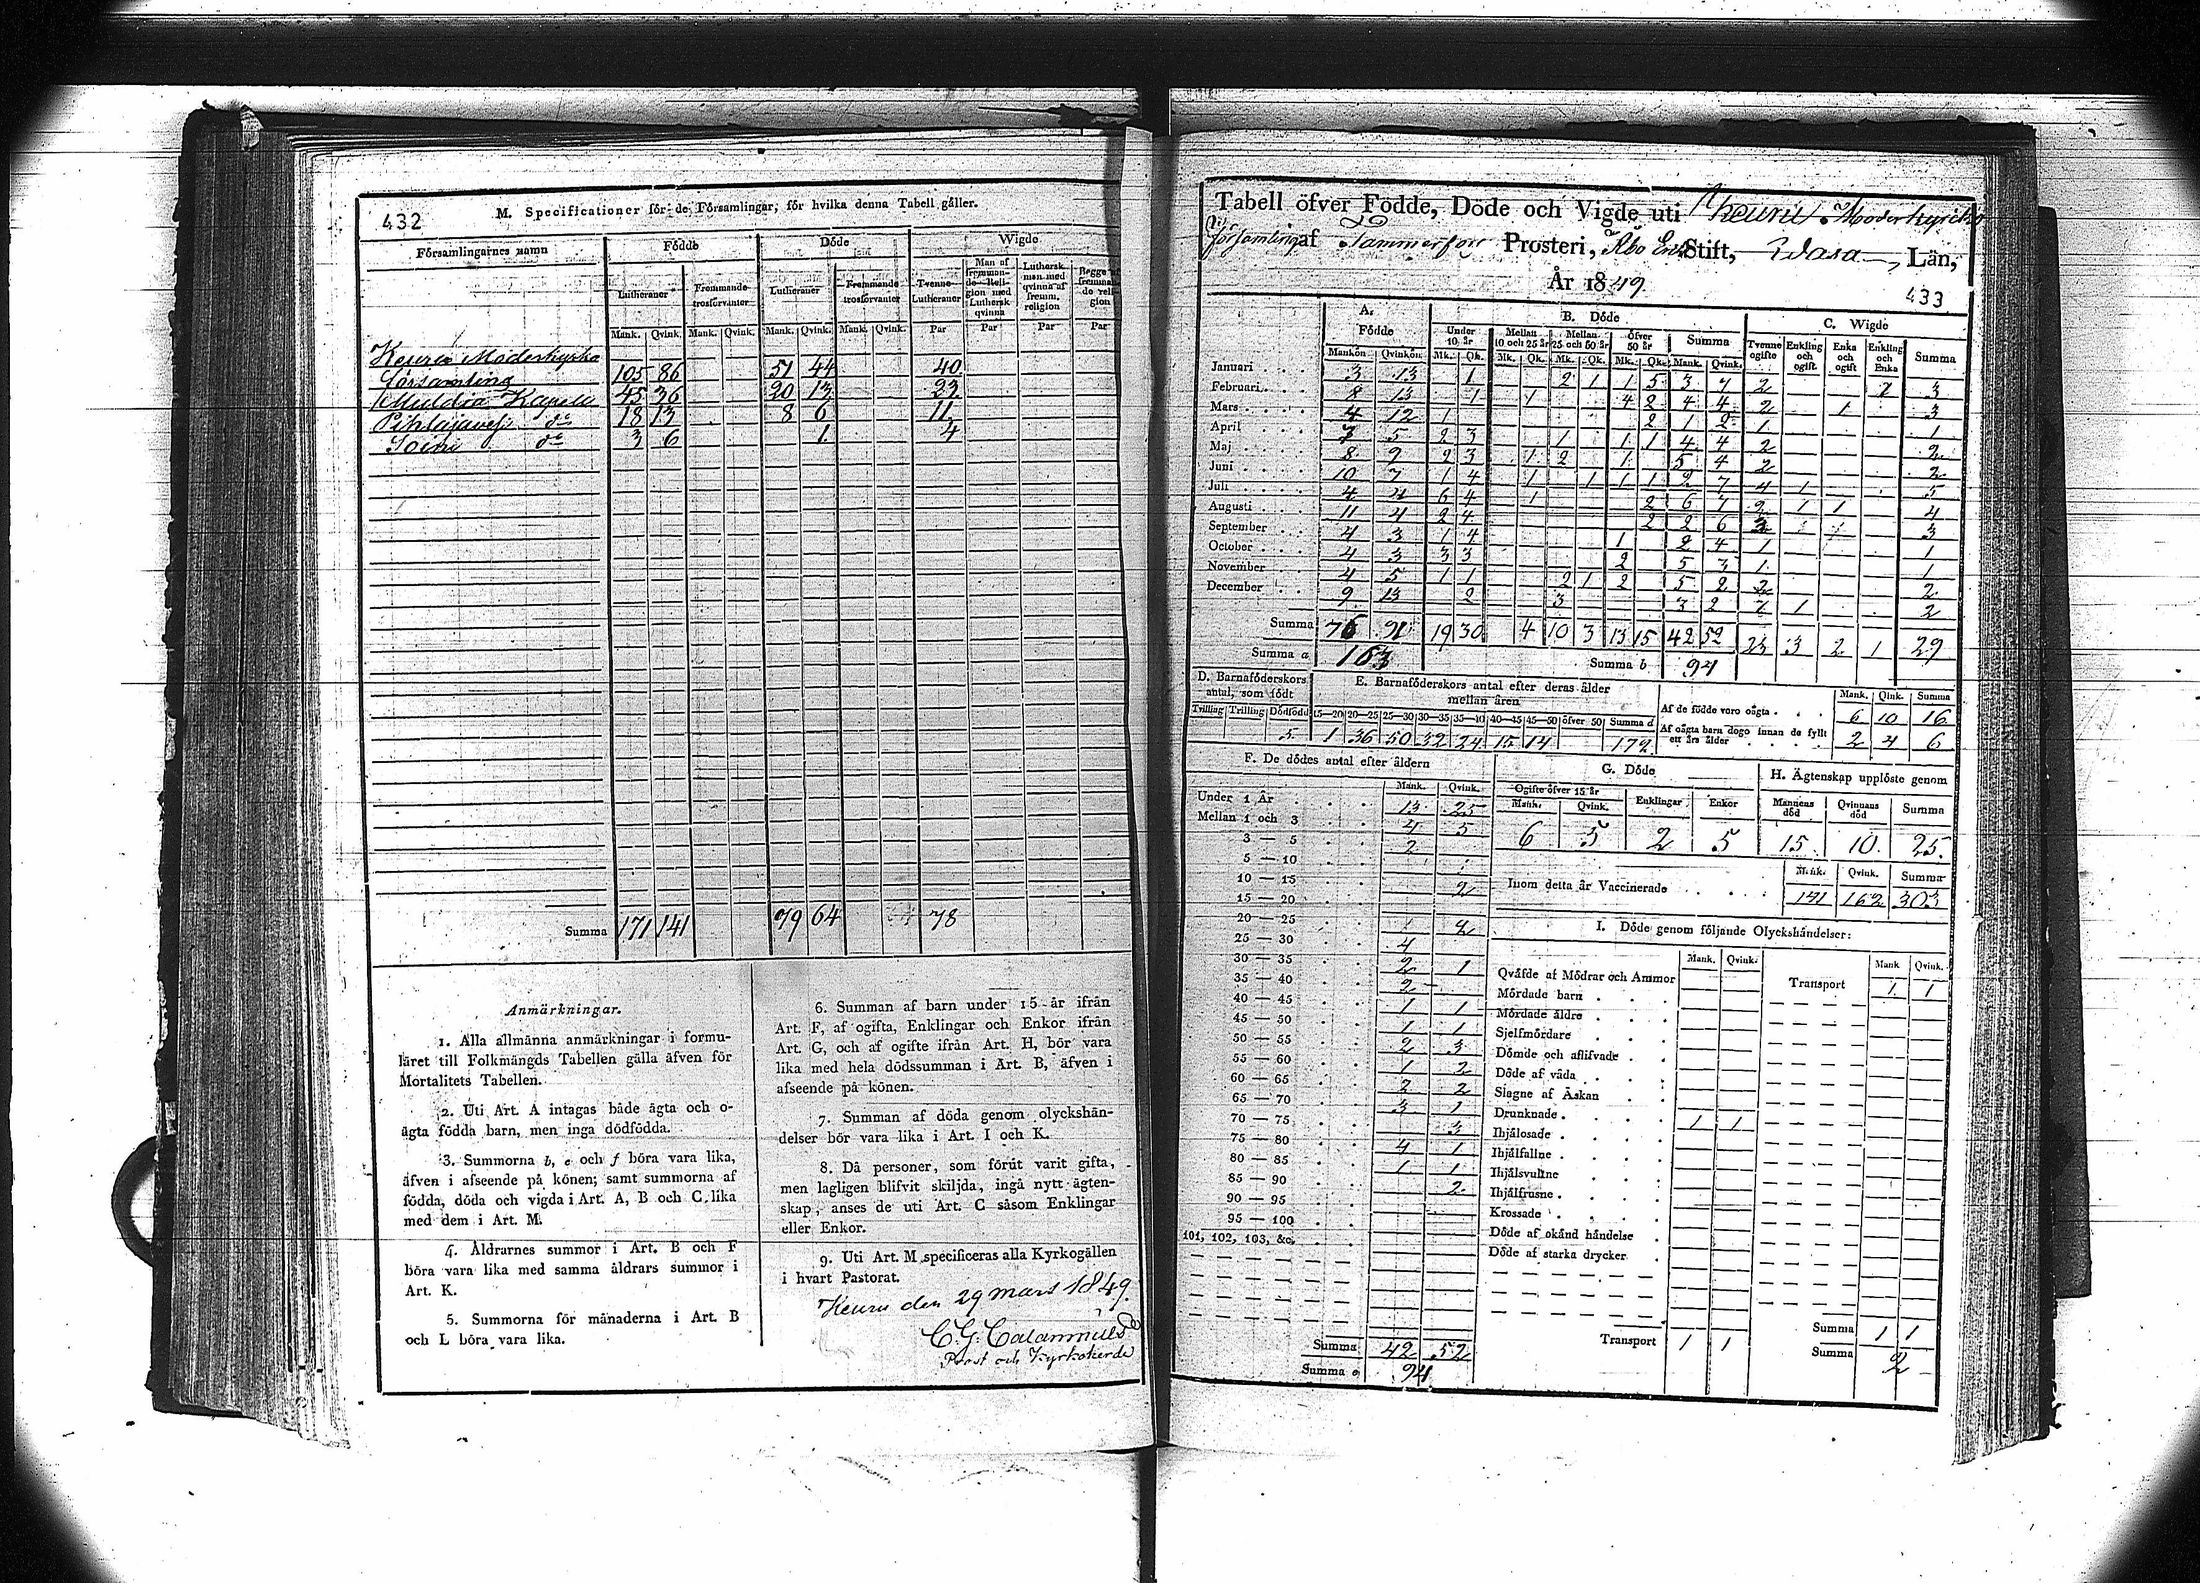 432
M. Specificationer för de Församlingar, för hvilka denna Tabell gäller.
Församlingarnes namn | Födde | Döde | Wigde
Lutheraner | Fremmande trosförvanter | Lutheraner | Fremmande trosförvanter | Tvenne Lutheraner | Man af fremmande Religion med Luthersk qvinna | Luthersk man med qvinna af fremm. religion | Begge af fremmande religion
Mank. | Qvink. | Mank. | Qvink. | Mank. | Qvink. | Mank. | Qvink. | Par | Par | Par | Par
Keuru Moderkyrko
församling 105 86 51 44 40
Multia Kapell 45 36 20 13 23
Pihlajavesi do 18 13 8 6 11
Soini do 3 6 1 4
Summa 171 141 79 64 78
Anmärkningar.
1. Alla allmänna anmärkningar i formu-
läret till Folkmängds Tabellen gälla äfven för
Mortalitets Tabellen.
2. Uti Art. A intagas både ägta och o-
ägta födda barn, men inga dödfödda.
3. Summorna b, e och f böra vara lika,
äfven i afseende på könen; samt summorna af
födda, döda och vigda i Art. A, B och C, lika
med dem i Art. M.
4. Åldrarnes summor i Art. B och F
böra vara lika med samma åldrars summor i
Art. K.
5. Summorna för månaderna i Art. B
och L böra vara lika.
6. Summan af barn under 15 år ifrån
Art. F, af ogifta, Enklingar och Enkor ifrån
Art. G, och af ogifte ifrån Art. H, bör vara
lika med hela dödssumman i Art. B, äfven i
afseende på könen.
7. Summan af döda genom olyckshän-
delser bör vara lika i Art. I och K.
8. Då personer, som förut varit gifta,
men lagligen blifvit skiljda, ingå nytt ägten-
skap, anses de uti Art. C såsom Enklingar
eller Enkor.
9. Uti Art. M specificeras alla Kyrkogällen
i hvart Pastorat.
Keuru den 29 mars 1849.
C.G. Calamnius
Prost och Kyrkoherde
Tabell öfver Födde, Döde och Vigde uti Keuru Moderkyrko
församling af Tammerfors Prosteri, Åbo Erke Stift, Wasa Län,
År 1849.
433
A. Födde | B. Döde | C. Wigde
Under 10 år | Mellan 10 och 25 år | Mellan 25 och 50 år | Öfver 50 år | Summa | Tvenne ogifte | Enkling och ogift | Enka och ogift | Enkling och Enka | Summa
Mankön | Qvinkön | Mk. | Qk. | Mk. | Qk. | Mk. | Qk. | Mk. | Qk. | Mank. | Qvink.
Januari 3 13 1 2 1 1 5 3 7 2 1 3
Februari 8 13 1 1 4 2 4 4 2 1 3
Mars 4 12 1 2 1 2 1 1
April 7 5 2 3 1 1 1 4 4 2 2
Maj 8 9 2 3 1 2 1 5 4 2 2
Juni 10 7 1 4 1 1 1 1 2 7 4 1 5
Juli
Augusti 11 4 2 4 2 2 6
September 4 3 1 4 1 2 4 1 1
October 4 3 3 3 2 5 3 1 1
November 4 5 1 1 2 1 2 5 2 2 2
December 9 13 2 3 3 2 1 2
Summa 76 19 30 4 10 3 13 15 42 52 23 3 2 1 29
Summa a 163
Summa b 94
D. Barnaföderskors antal, som födt
Tvilling | Trilling | Dödfödd
5
E. Barnaföderskors antal efter deras ålder mellan åren
15—20 | 20—25 | 25—30 | 30—35 | 35—40 | 40—45 | 45—50 | öfver 50 | Summa d
1 36 50 32 24 15 14 172
Mank. | Qink. | Summa
Af de födde voro oägta . . . 6 10 16
Af oägta barn dogo innan de fyllt ett års ålder 2 4 6
F. De dödes antal efter åldern
Mank. | Qvink.
Under 1 År 13 25
Mellan 1 och 3 4 5
3 — 5 2
5 — 10
10 — 15 2
15 — 20
20 — 25 1 2
25 — 30 4
30 — 35 2 1
35 — 40 2
40 — 45 1 1
45 — 50 1 1
50 — 55 2 3
55 — 60 1 2
60 — 65 2 2
65 — 70 3 1
70 — 75 3
75 — 80 4 1
80 — 85 1 1
85 — 90 2
90 — 95
95 — 100
101, 102, 103, &c.
Summa 42 52
Summa e 94
G. Döde
Ogifte öfver 15 år | Enklingar | Enkor
Mank. | Qvink.
6 5 2 5
H. Ägtenskap upplöste genom
Mannens död | Qvinnans död | Summa
15 10 25
Mank. | Qvink. | Summa
Inom detta år Vaccinerade 141 162 303
I. Döde genom följande Olyckshändelser:
Mank. | Qvink. | Mank | Qvink.
Qväfde af Mödrar och Ammor
Transport 1 1
Mördade barn
Mördade äldre
Sjelfmördare
Dömde och aflifvade
Döde af våda
Slagne af Åskan
Drunknade 1 1
Ihjälosade
Ihjälfallne
Ihjälsvultne
Ihjälfrusne
Krossade
Döde af okänd händelse
Döde af starka drycker
Transport 1 1
Summa 1 1
Summa 2